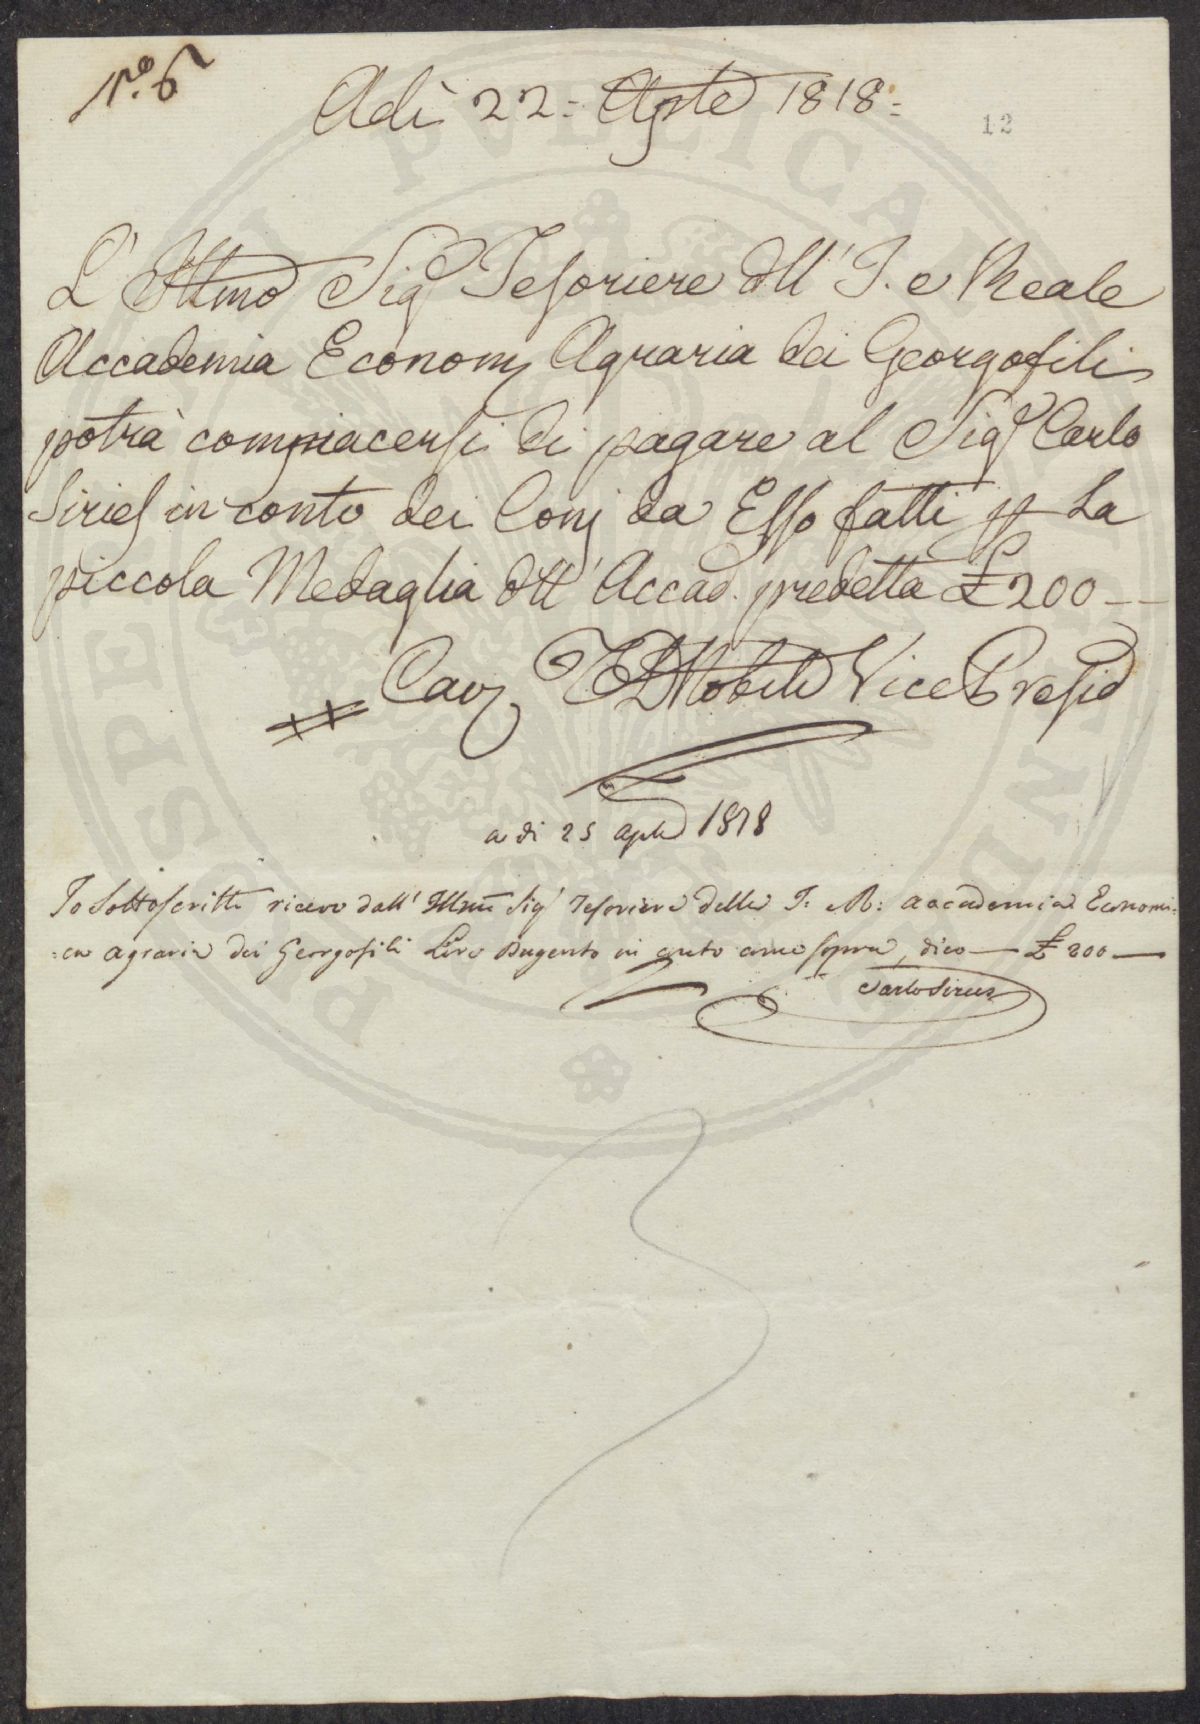 N.o 6
Adì 22= Aprile 1818=
12
L' Illmo Sigr Tesoriere dell' I. e Reale
Accademia Econom. Agraria dei Georgofili
potrà compiacersi di pagare al Sigr Carlo
Siries in conto dei Conj da Esso fatti p. La
piccola Medaglia dell' Accad. predetta £ 200 —
Cav. Nobili Vice Presid
a di 25 aple 1818
Io Sottoscritto ricevo dall' Illmo Sigr Tesoriere della I: R: accademia Economi=
=ca agraria dei Georgofili Lire Dugento in conto come sopra, dico — £ 200 —
Carlo Siries
PROSPERITATI PUBLICAE AUGENDAE